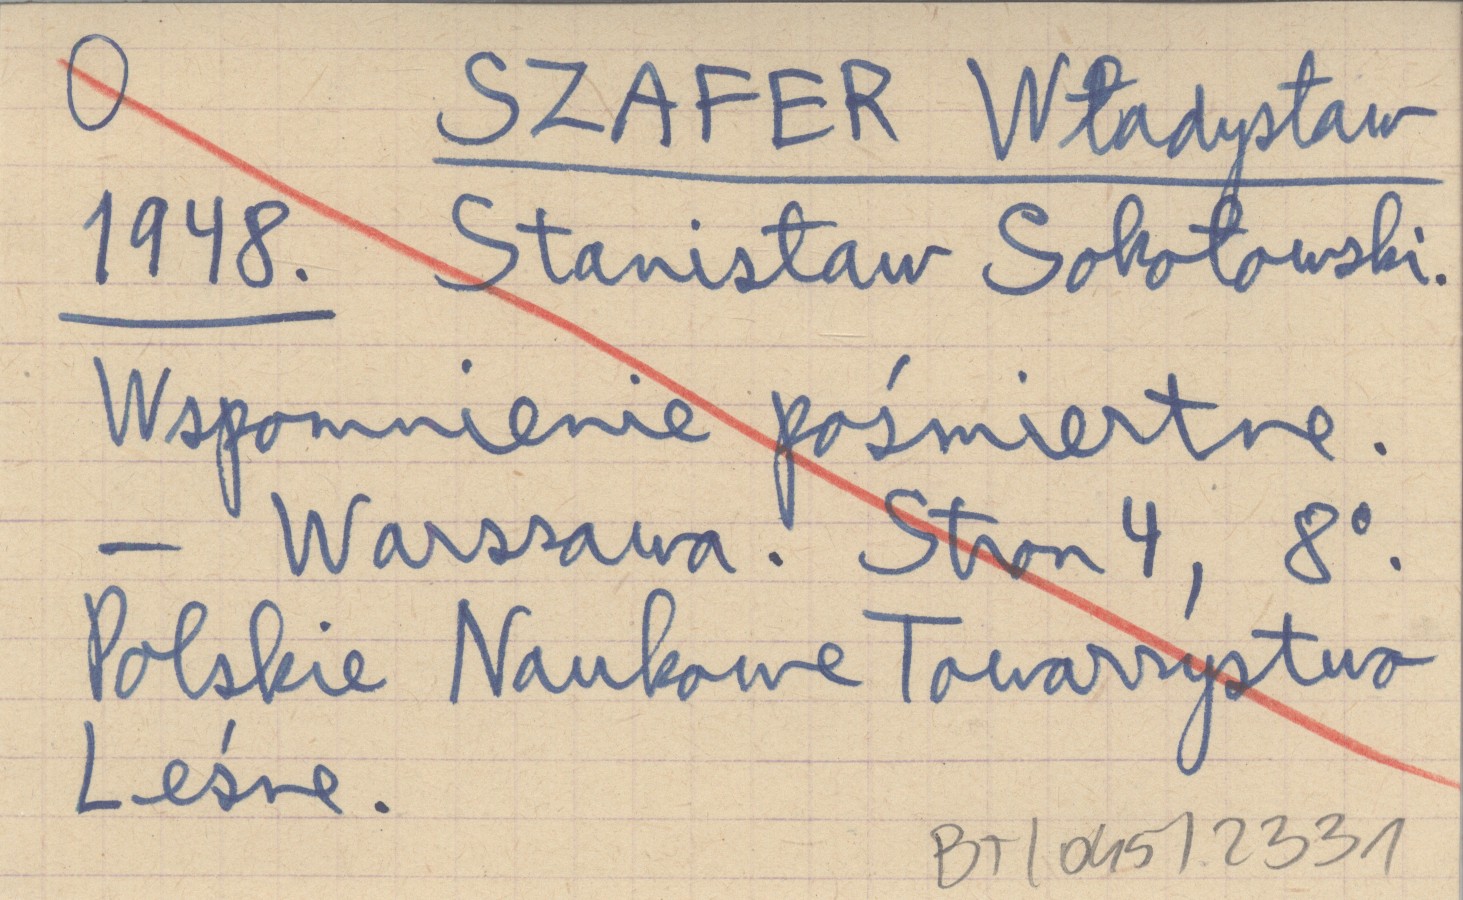 O SZAFER Władysław
1948. Stanisław Sokołowski.
Wspomnienie pośmiertne.
— Warszawa. Stron 4, 8°.
Polskie Naukowe Towarzystwo
Leśne.
BT/045/2331